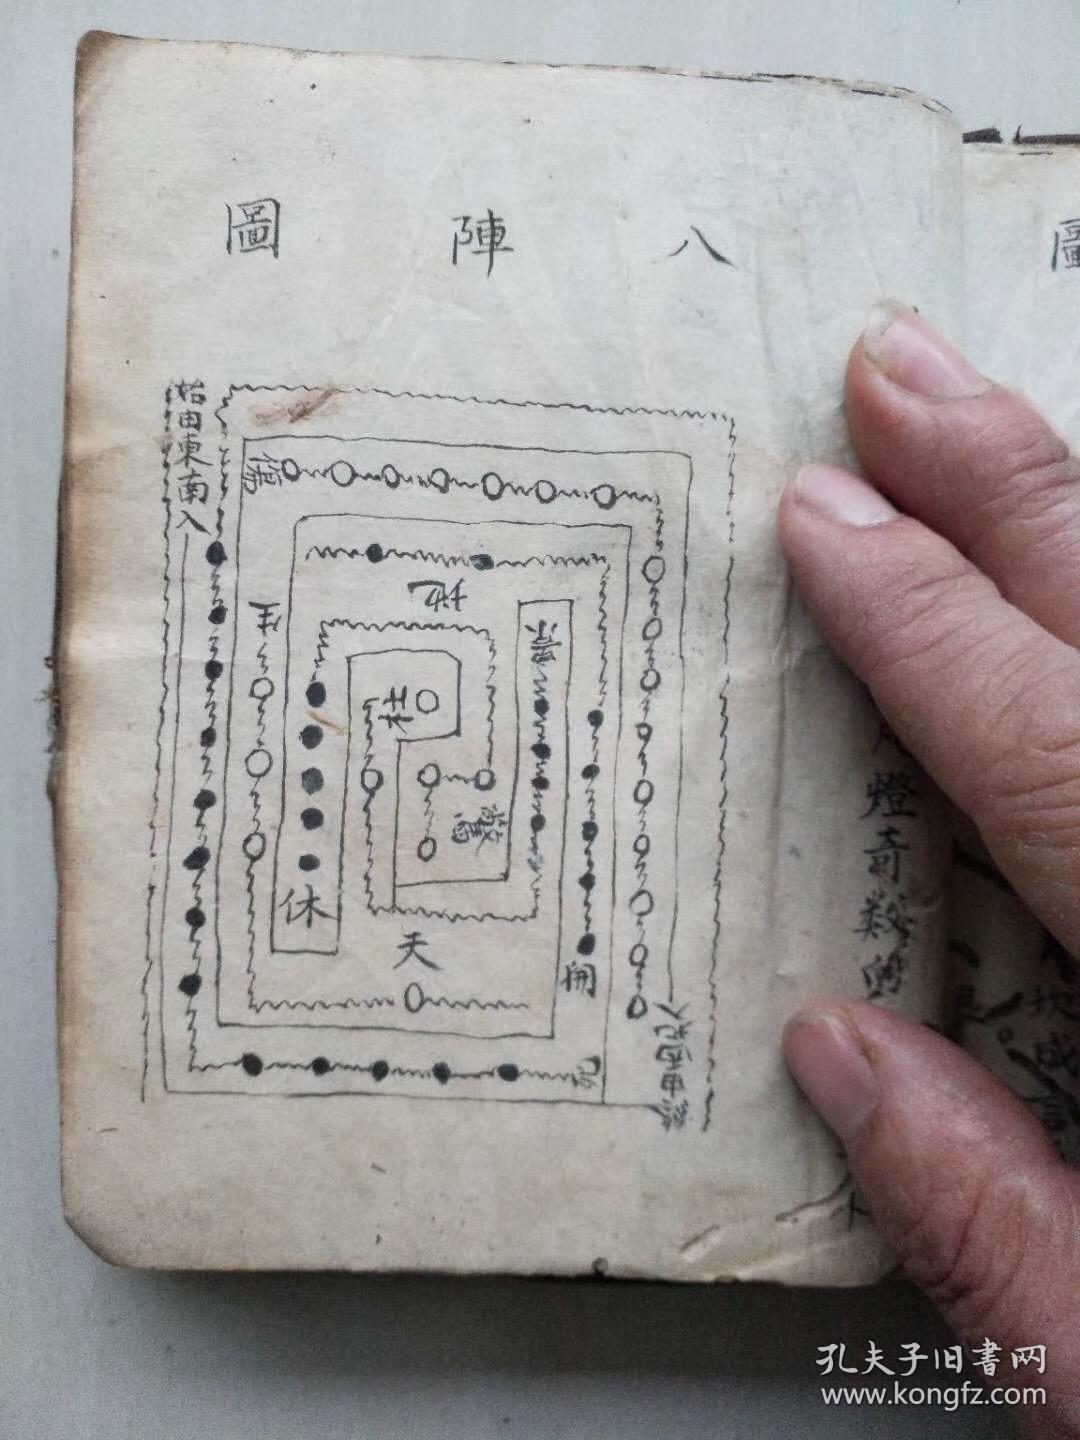 八陣圖
始由東南入
傷
生
地
景
杜
驚
休
天
開
死
終由西北入
燈奇数
坎成
圖
孔夫子旧書网
www.kongfz.com